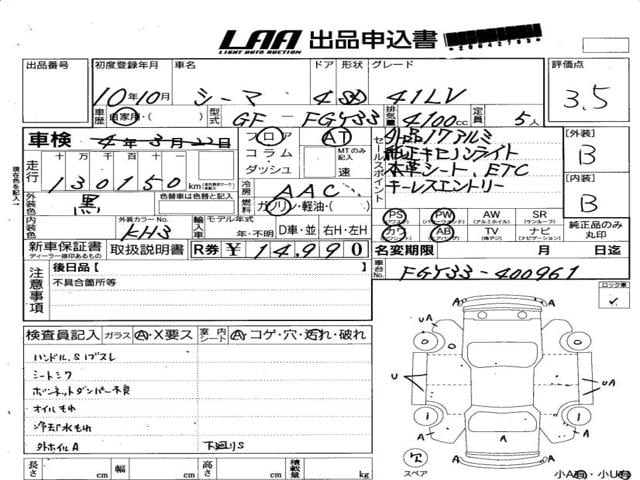 LAA 出品申込書
LIGHT AUTO AUCTION
出品番号 初度登録年月 車名 ドア 形状 グレード 評価点
10年10月 シーマ 4 SD 41LV 3.5
車歴 自家用・( ) 型式 GF-FGY33 排気量 4100cc 定員 5人
車検 4年3月22日
フロア AT
コラム MTのみ記入
ダッシュ 速
セールスポイント
外品17アルミ
純正キセノンライト
本革シート、ETC
キーレスエントリー
[外装] B
[内装] B
走行 十 万 千 百 十
130150km
冷房 AAC
外装色 黒 色替車は色替と記入
燃料 ガソリン・軽油・( )
内装色 外装カラーNo. KH3
輸入車 モデル年式 年・不明 D車・並 右H・左H
PS PW AW SR
(パワステ) (パワーウィンドウ) (アルミホイル) (サンルーフ)
カワ AB TV ナビ
(エアバッグ) (後付) (ナビゲーション)
純正品のみ丸印
新車保証書 取扱説明書 R券 ¥14,990 名変期限 月 日
ディーラー捺印あるもの
車台No. FGY33-400961
注意事項
後日品[ ]
不具合箇所等
ロック車
✓
検査員記入 ガラス Ⓐ・X要ス 室内シート Ⓐ・コゲ・穴・汚れ・破れ
ハンドル、Sリブスレ
シートシワ
ボンネットダンパー不良
オイルもれ
冷却水もれ
外ホイルA 下廻りS
長さ cm 幅 cm 高さ cm 積載量 kg
A A
uA A
0 0
U uA
1 1
A A
A A
スペア
小A・小U